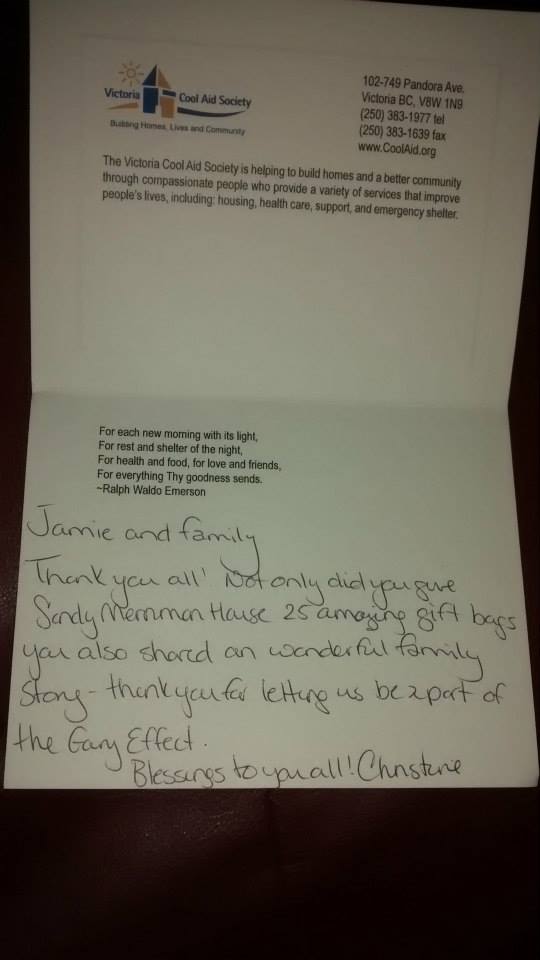 Victoria Cool Aid Society
Building Homes, Lives and Community
102-749 Pandora Ave.
Victoria BC, V8W 1N9
(250) 383-1977 tel
(250) 383-1639 fax
www.CoolAid.org
The Victoria Cool Aid Society is helping to build homes and a better community
through compassionate people who provide a variety of services that improve
people's lives, including: housing, health care, support, and emergency shelter.
For each new morning with its light,
For rest and shelter of the night,
For health and food, for love and friends,
For everything Thy goodness sends.
~Ralph Waldo Emerson
Jamie and family
Thank you all! Not only did you give
Sandy Merriman House 25 amazing gift bags
you also shared an wonderful family
Story - thank you for letting us be a part of
the Gary Effect.
Blessings to you all! Christine